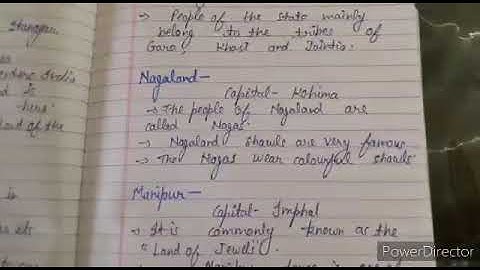 → People of the state mainly
belong to the tribes of
Garo, Khasi and Jaintia.
Nagaland-
Capital- Kohima
→ The people of Nagaland are
called Nagas.
→ Nagaland shawls are very famous
→ The Nagas wear colourful shawls
Manipur-
Capital- Imphal
→ It is commonly known as the
"Land of Jewels".
India
is
land of the
in
PowerDirector